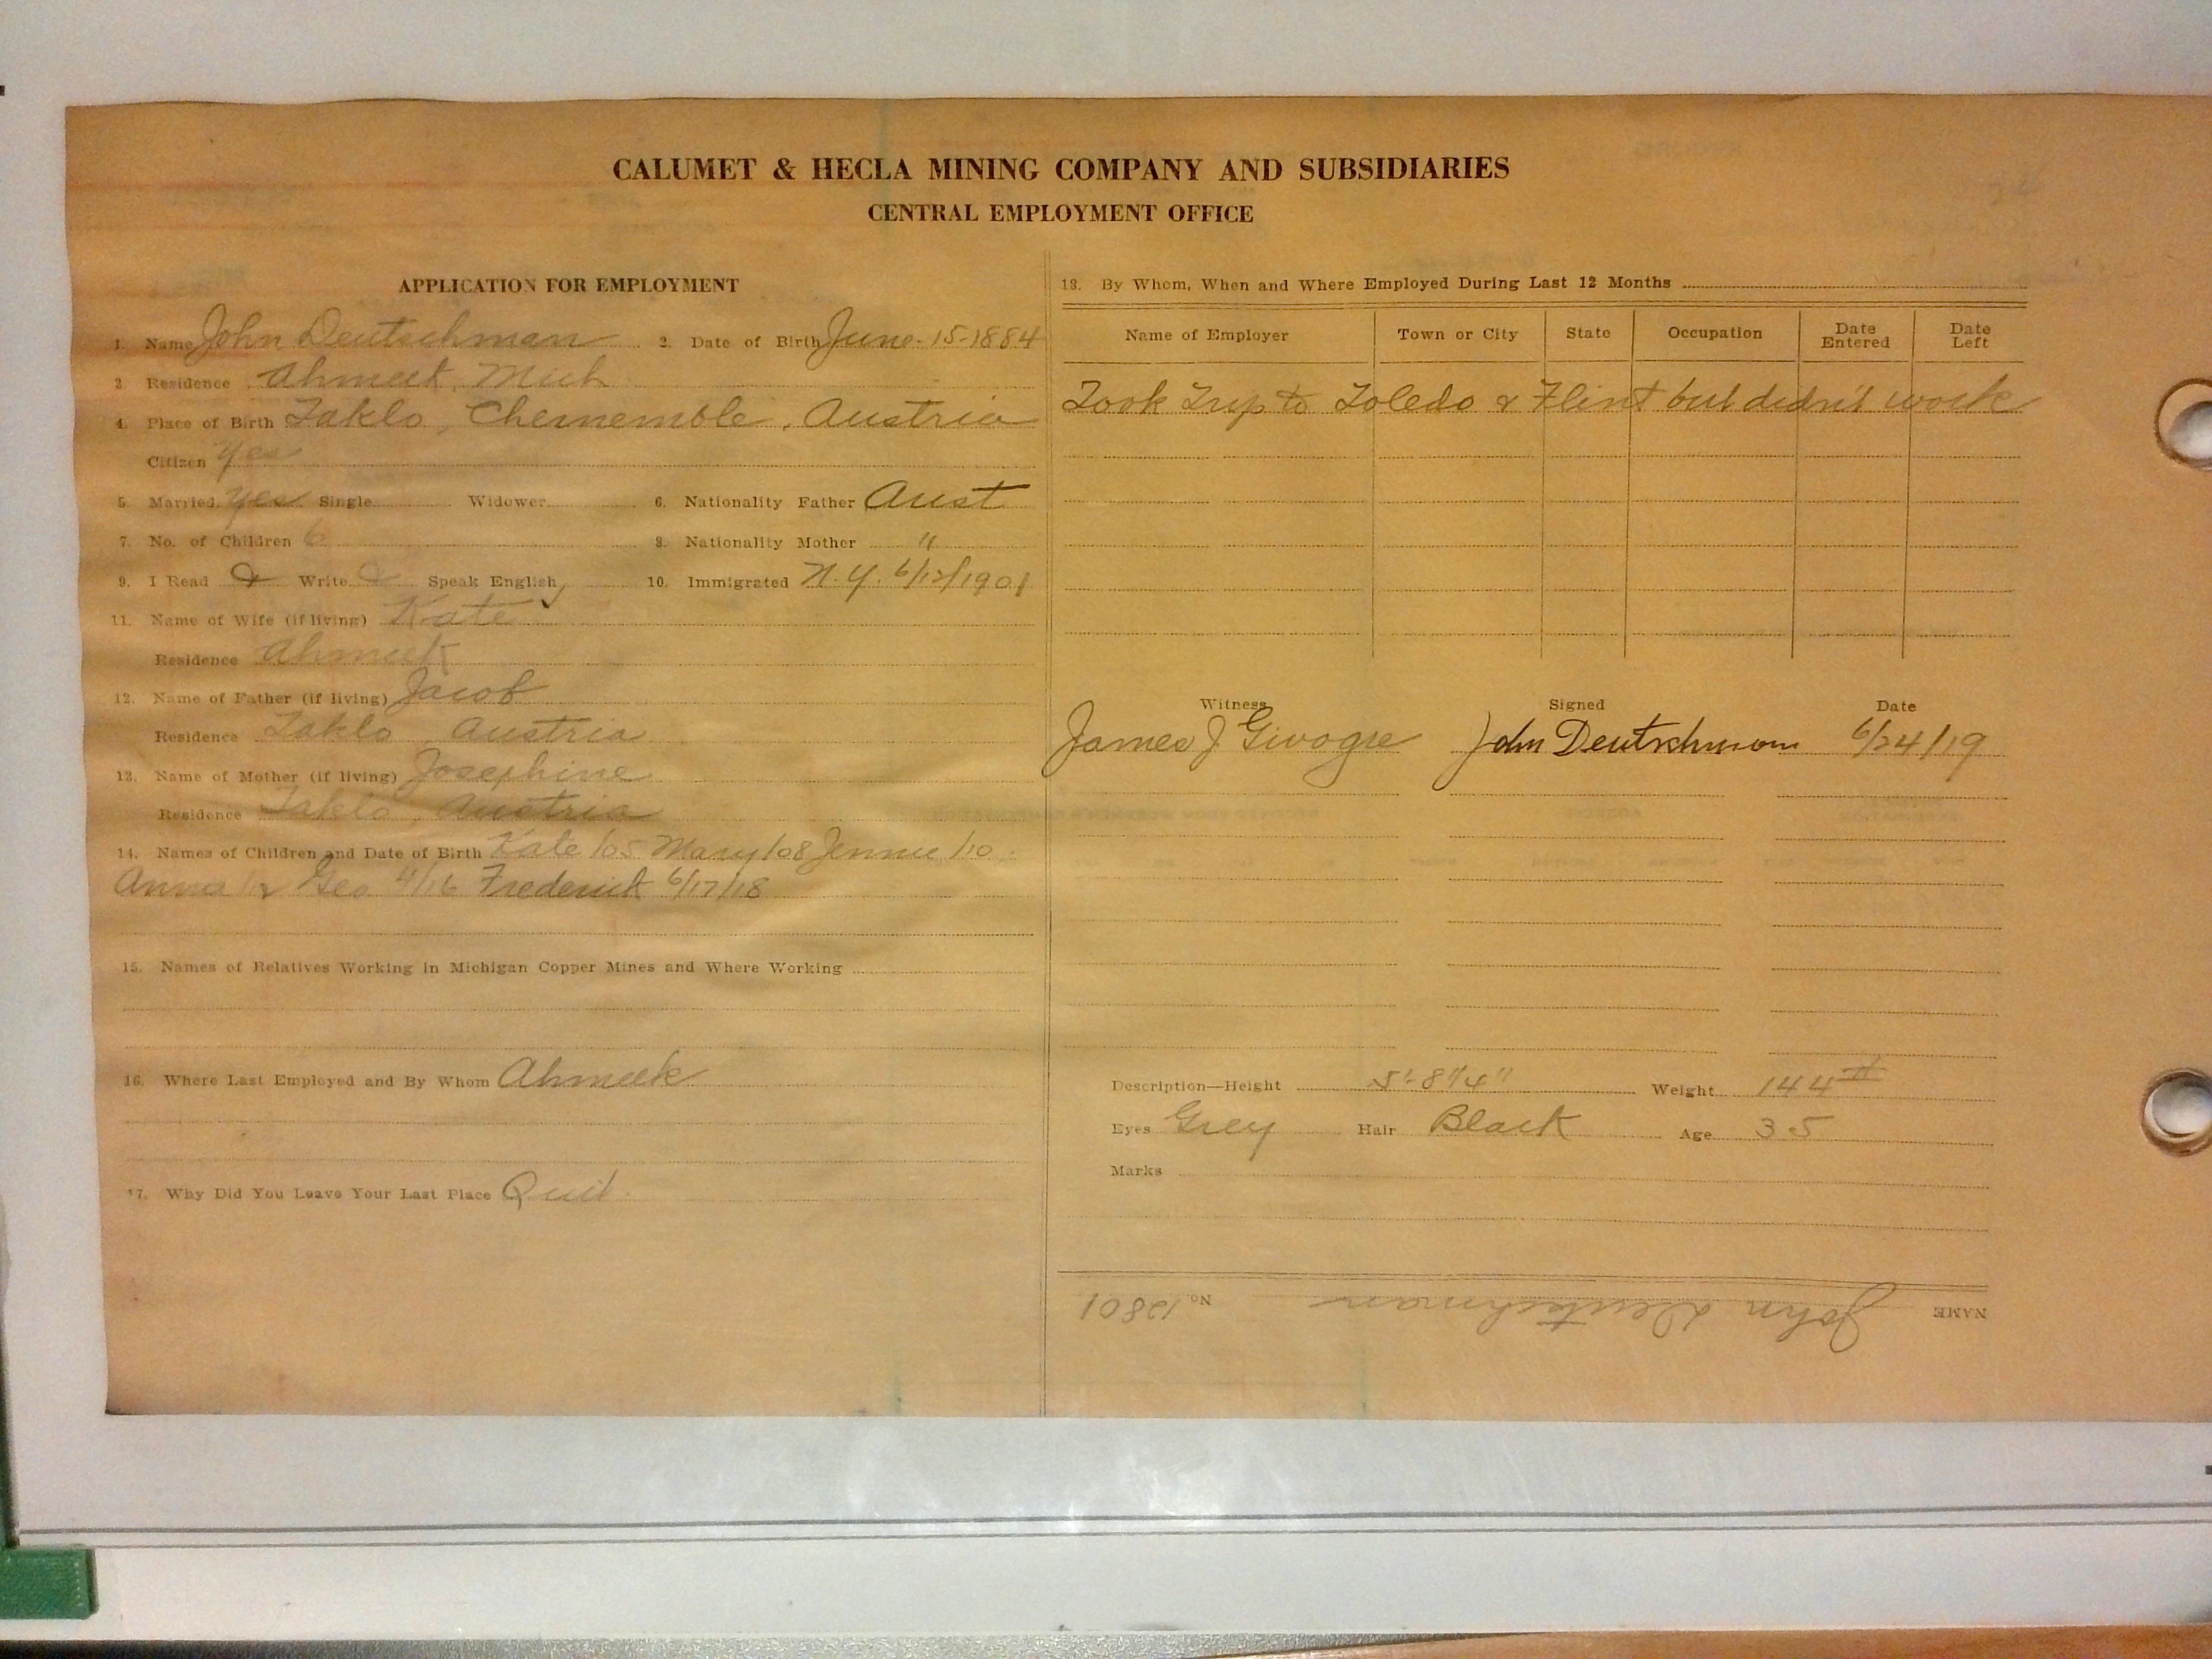 CALUMET & HECLA MINING COMPANY AND SUBSIDIARIES
CENTRAL EMPLOYMENT OFFICE
APPLICATION FOR EMPLOYMENT
1. Name John Deutschman 2. Date of Birth June-15-1884
3. Residence Ahmeek, Mich
4. Place of Birth Taklo, Chernemble, Austria
Citizen Yes
5. Married Yes Single Widower 6. Nationality Father Aust
7. No. of Children 6 8. Nationality Mother "
9. I Read Write Speak English 10. Immigrated N.Y. 6/12/1901
11. Name of Wife (if living) Kate
Residence Ahmeek
12. Name of Father (if living) Jacob
Residence Taklo, Austria
13. Name of Mother (if living) Josephine
Residence Taklo, Austria
14. Names of Children and Date of Birth Kate /05 Mary /08 Jennie /10
Anna /12 Geo 4/16 Frederick 6/17/18
15. Names of Relatives Working in Michigan Copper Mines and Where Working
16. Where Last Employed and By Whom Ahmeek
17. Why Did You Leave Your Last Place Quit
18. By Whom, When and Where Employed During Last 12 Months
Name of Employer Town or City State Occupation Date Entered Date Left
Took Trip to Toledo & Flint but didn't work
Witness Signed Date
James J John Deutschman 6/24/19
Description—Height 5'-8 1/4" Weight 144#
Eyes Grey Hair Black Age 35
Marks
NAME John Deutschman No. 12801